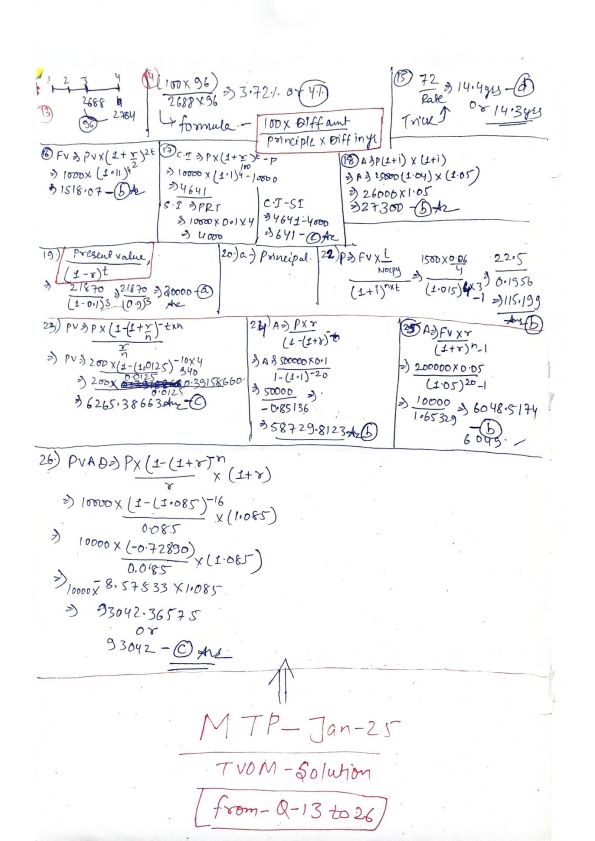 1 2 3 4
13) 2688 2784
96
14 (100 x 96) / 2688 x 96 ⇒ 3.72% or 4%
↳ formula - 100 x Diff amt / Principle x Diff in yr
15 72 / Rate ⇒ 14.4 yrs - d
Trick ↑ or 14.3 yrs
16 FV ⇒ PV x (1 + r/2)^2t
⇒ 1000 x (1.11)^4
⇒ 1518.07 - b Ans
17 C.I ⇒ P x (1 + r/100)^t - P
⇒ 10000 x (1.1)^4 - 10000
⇒ 4641
S.I ⇒ PRT
⇒ 10000 x 0.1 x 4
⇒ 4000
C.I - SI
⇒ 4641 - 4000
⇒ 641 - c Ans
18 A ⇒ P(1+i) x (1+i)
A ⇒ 25000 (1.04) x (1.05)
⇒ 26000 x 1.05
⇒ 27300 - b Ans
19) Present value / (1-r)^t
⇒ 21870 / (1-0.1)^3 ⇒ 21870 / (0.9)^3 ⇒ 30000 - a Ans
20) a) - Principal
22) P ⇒ FV x i / NOCPY / (1+i)^nxt ⇒ 1500 x 0.06 / 4 / (1.015)^4x3 - 1 ⇒ 22.5 / 0.1956
⇒ 115.199
Ans b
23) PV ⇒ P x (1 - (1 + r/n)^-txn) / r/n
⇒ PV ⇒ 200 x (1 - (1.0125)^-10x4) / 0.0125
⇒ 200 x 0.39158660 / 0.0125
⇒ 6265.38663 Ans - c
24) A ⇒ P x r / (1 - (1+r)^-t)
⇒ A ⇒ 500000 x 0.1 / 1 - (1.1)^-20
⇒ 50000 / -0.85136 ⇒
⇒ 58729.8123 Ans b
25 A ⇒ FV x r / (1+r)^n - 1
⇒ 200000 x 0.05 / (1.05)^20 - 1
⇒ 10000 / 1.65329 ⇒ 6048.5174
- b
6049.
26) PVAD ⇒ P x (1 - (1+r)^-n) / r x (1+r)
⇒ 10000 x (1 - (1.085)^-16) / 0.085 x (1.085)
⇒ 10000 x (-0.72890) / 0.085 x (1.085)
⇒ 10000 x -8.57533 x 1.085
⇒ 93042.36575
or
93042 - c Ans
MTP - Jan - 25
TVOM - Solution
from - Q - 13 to 26